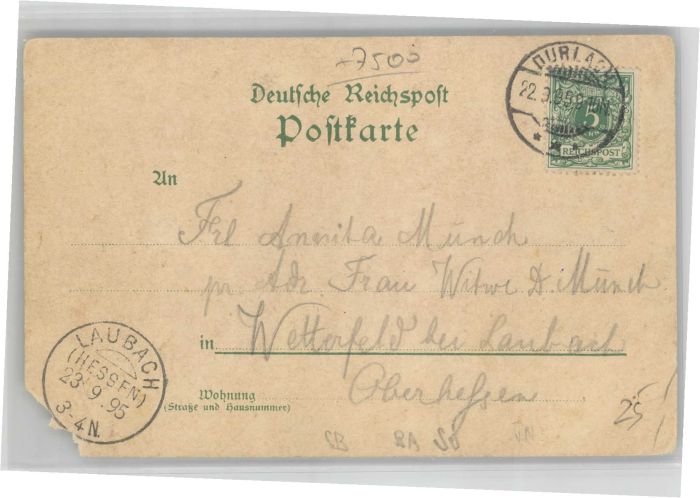 7500
DURLACH
22.9.95
5
REICHSPOST
Deutsche Reichspost
Postkarte
An
Frl Annita Münch
pr. Adr. Frau Witwe D Münch
in Wetterfeld bei Laubach
Oberhessen
Wohnung
(Straße und Hausnummer)
LAUBACH
(HESSEN)
23 9 95
3-4N.
25